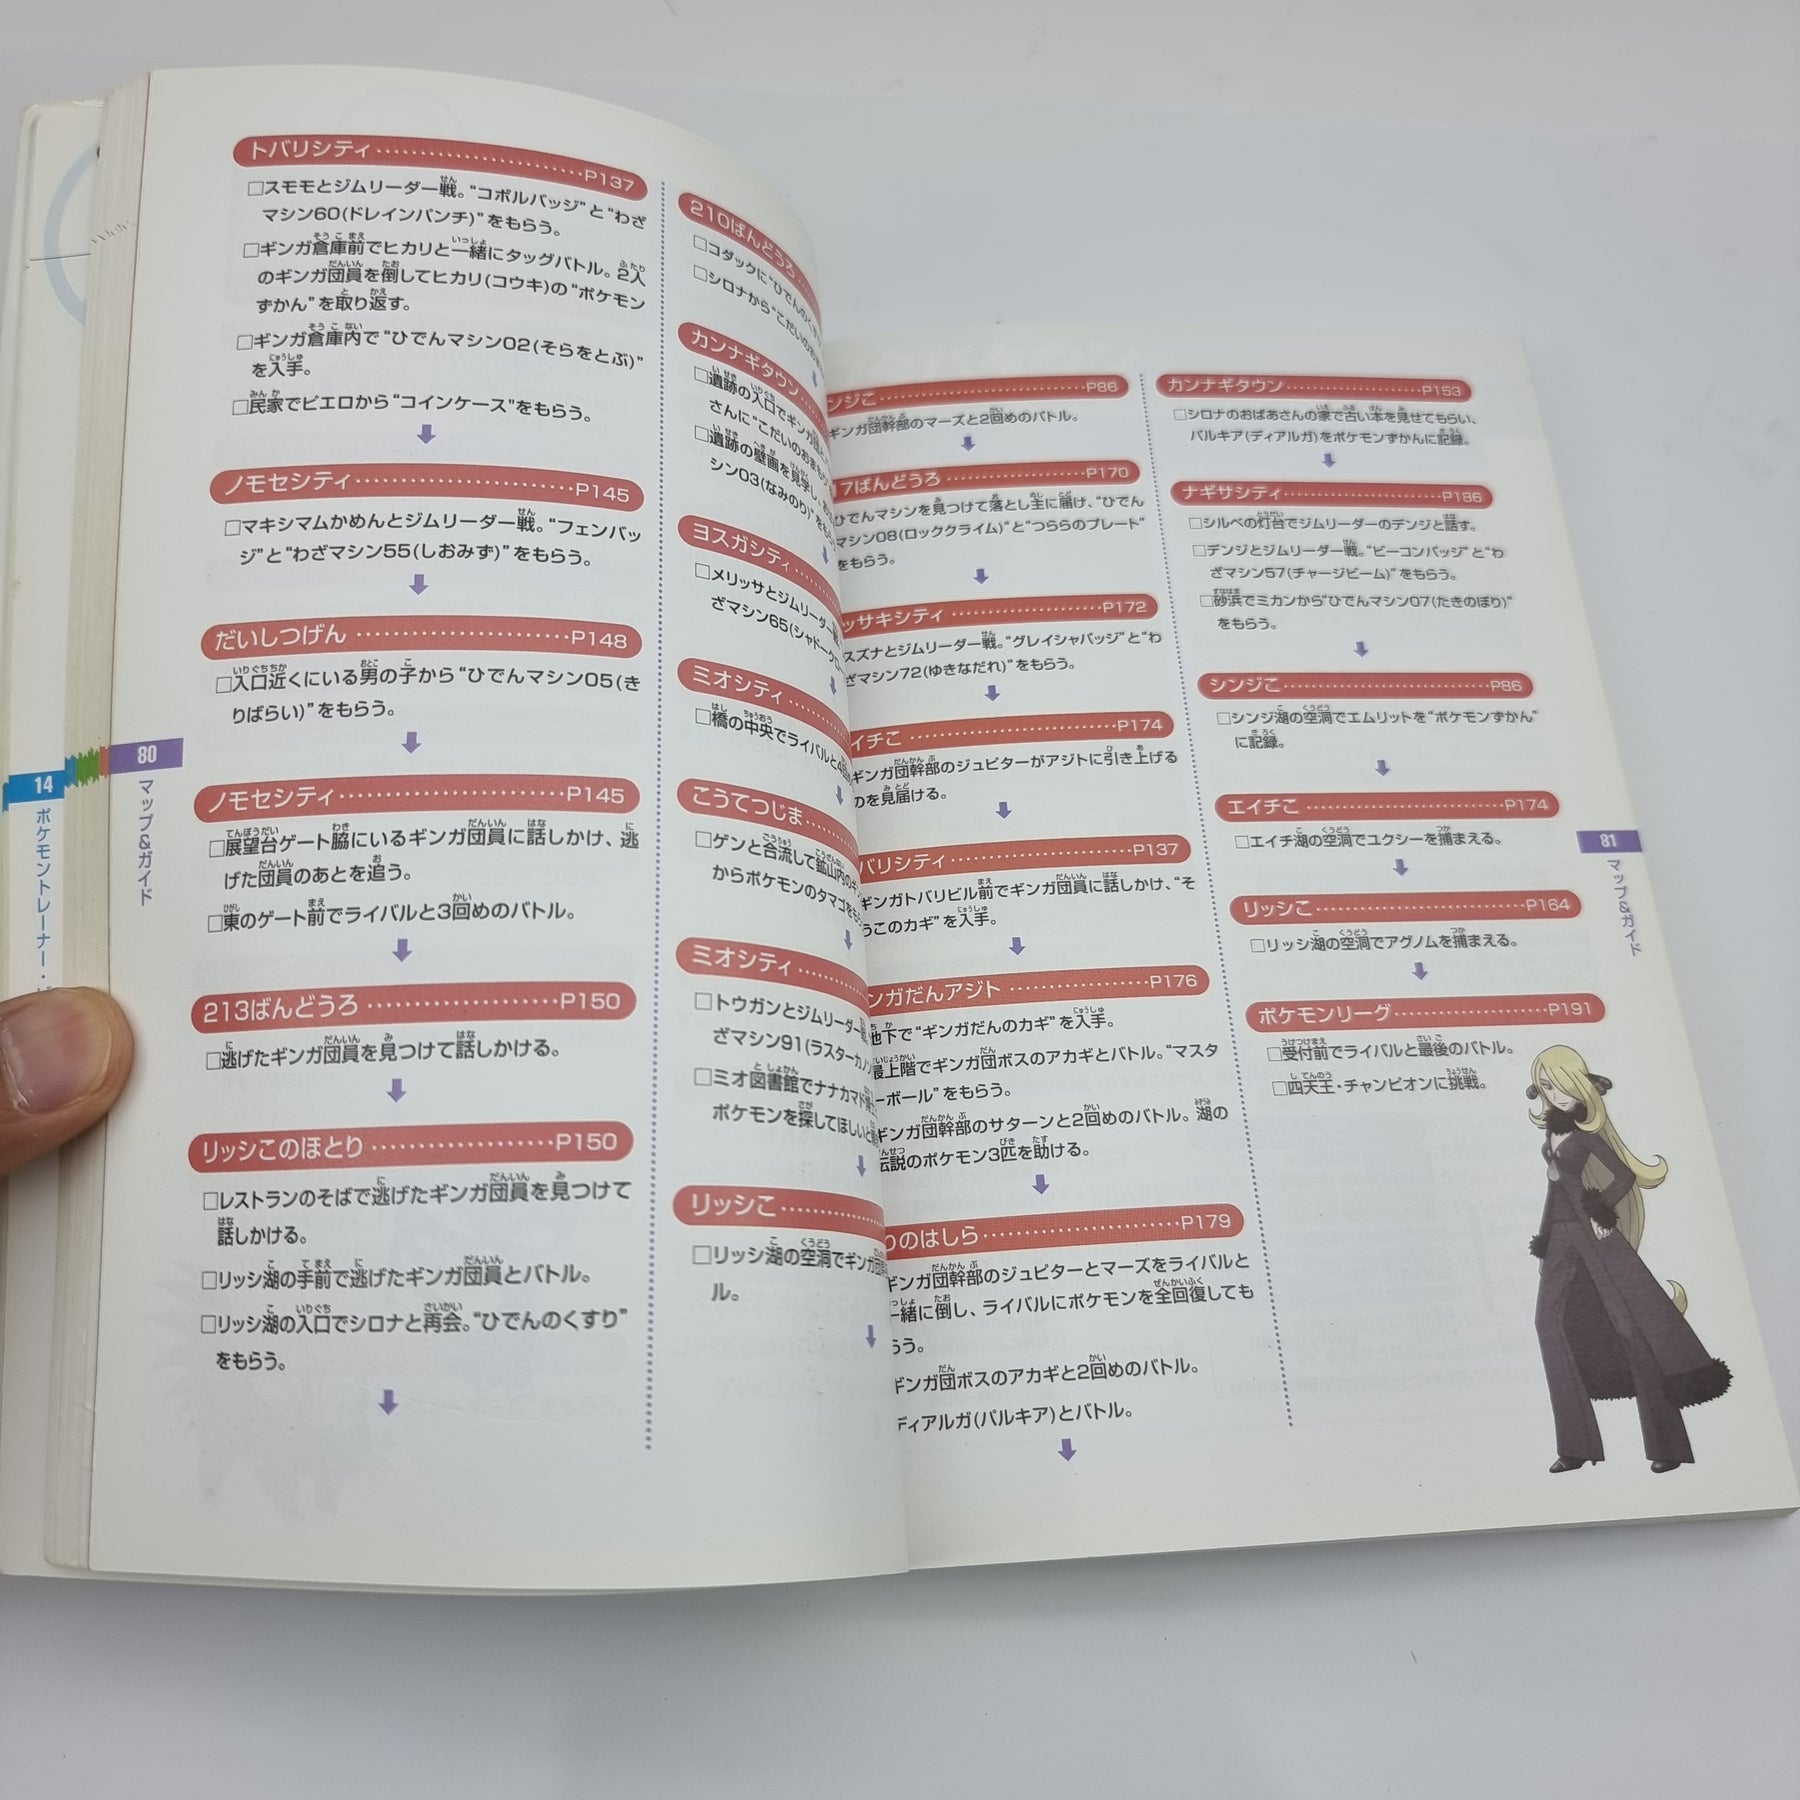 トバリシティ P137
□スモモとジムリーダー戦。“コボルバッジ”と“わざ
マシン60(ドレインパンチ)”をもらう。
□ギンガ倉庫前でヒカリと一緒にタッグバトル。2人
のギンガ団員を倒してヒカリ(コウキ)の“ポケモン
ずかん”を取り返す。
□ギンガ倉庫内で“ひでんマシン02(そらをとぶ)”
を入手。
□民家でピエロから“コインケース”をもらう。
ノモセシティ P145
□マキシマムかめんとジムリーダー戦。“フェンバッ
ジ”と“わざマシン55(しおみず)”をもらう。
だいしつげん P148
□入口近くにいる男の子から“ひでんマシン05(き
りばらい)”をもらう。
ノモセシティ P145
□展望台ゲート脇にいるギンガ団員に話しかけ、逃
げた団員のあとを追う。
□東のゲート前でライバルと3回めのバトル。
213ばんどうろ P150
□逃げたギンガ団員を見つけて話しかける。
リッシこのほとり P150
□レストランのそばで逃げたギンガ団員を見つけて
話しかける。
□リッシ湖の手前で逃げたギンガ団員とバトル。
□リッシ湖の入口でシロナと再会。“ひでんのくすり”
をもらう。
210ばんどうろ
□コダックに“ひでんのくす
□シロナから“こだいのお
カンナギタウン
□遺跡の入口でギンガ
さんに“こだいのおまも
□遺跡の壁画を見学し、
シン03(なみのり)”をも
ヨスガシティ
□メリッサとジムリーダー
ざマシン65(シャドークロ
ミオシティ
□橋の中央でライバルと4
こうてつじま
□ゲンと合流して鉱山内のギン
からポケモンのタマゴをも
ミオシティ
□トウガンとジムリーダー
ざマシン91(ラスターカノ
□ミオ図書館でナナカマド
ポケモンを探してほしいと
リッシこ
□リッシ湖の空洞でギンガ団
ル。
80
マップ&ガイド
14
ポケモントレーナー・
ンジこ P86
ギンガ団幹部のマーズと2回めのバトル。
7ばんどうろ P170
ひでんマシンを見つけて落とし主に届け、“ひでん
マシン08(ロッククライム)”と“つららのプレート”
をもらう。
ッサキシティ P172
スズナとジムリーダー戦。“グレイシャバッジ”と“わ
ざマシン72(ゆきなだれ)”をもらう。
イチこ P174
ギンガ団幹部のジュピターがアジトに引き上げる
のを見届ける。
バリシティ P137
ギンガトバリビル前でギンガ団員に話しかけ、“そ
うこのカギ”を入手。
ンガだんアジト P176
地下で“ギンガだんのカギ”を入手。
最上階でギンガ団ボスのアカギとバトル。“マスタ
ーボール”をもらう。
ギンガ団幹部のサターンと2回めのバトル。湖の
伝説のポケモン3匹を助ける。
りのはしら P179
ギンガ団幹部のジュピターとマーズをライバルと
一緒に倒し、ライバルにポケモンを全回復しても
らう。
ギンガ団ボスのアカギと2回めのバトル。
ディアルガ(パルキア)とバトル。
カンナギタウン P153
□シロナのおばあさんの家で古い本を見せてもらい、
パルキア(ディアルガ)をポケモンずかんに記録。
ナギサシティ P186
□シルベの灯台でジムリーダーのデンジと話す。
□デンジとジムリーダー戦。“ビーコンバッジ”と“わ
ざマシン57(チャージビーム)”をもらう。
□砂浜でミカンから“ひでんマシン07(たきのぼり)”
をもらう。
シンジこ P86
□シンジ湖の空洞でエムリットを“ポケモンずかん”
に記録。
エイチこ P174
□エイチ湖の空洞でユクシーを捕まえる。
リッシこ P164
□リッシ湖の空洞でアグノムを捕まえる。
ポケモンリーグ P191
□受付前でライバルと最後のバトル。
□四天王・チャンピオンに挑戦。
81
マップ&ガイド